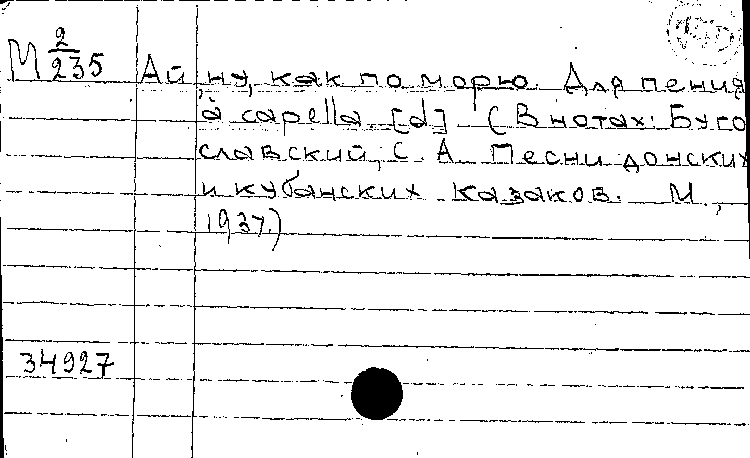 М 2/235 Ай, ну, как по морю. Для пения
à capella [d] (В нотах: Буго
славский, С. А. Песни донских
и кубанских казаков. М.,
1937.)
34927